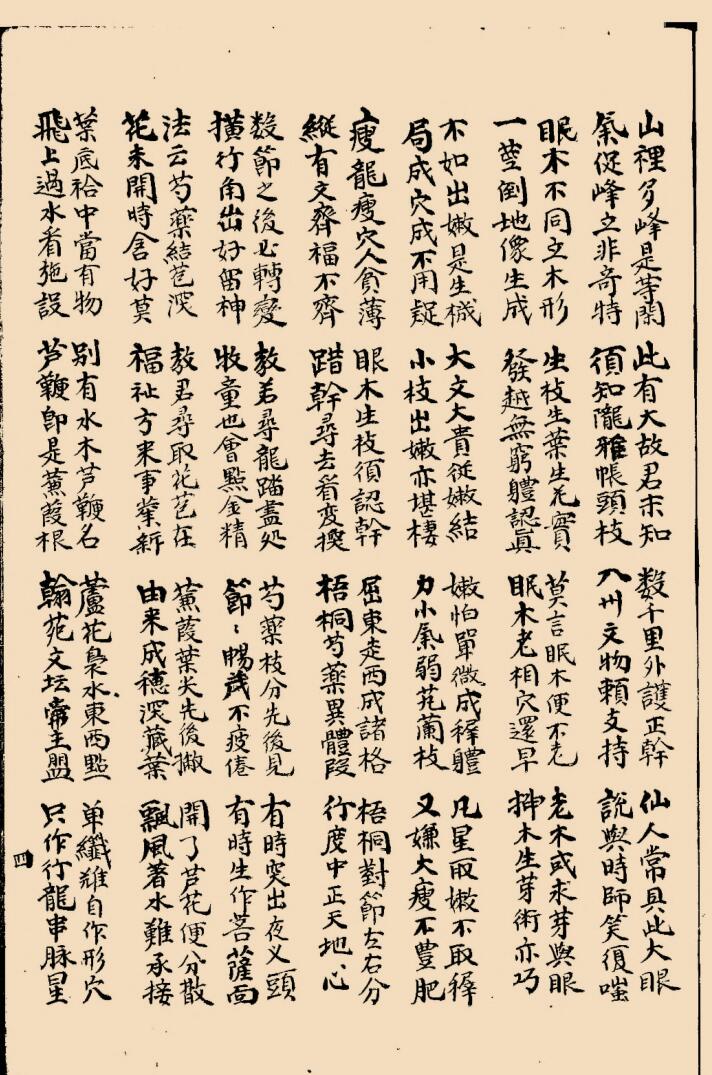 山裡多峰是等閑
氣促峰立非奇特
此有大故君未知
須知隴雅帳頭枝
数千里外護正幹
八州文物賴支持
仙人常具此大眼
說與時師笑復嗤
眠木不同立木形
一莖倒地像生成
生枝生葉生花實
發越無窮體認眞
莫言眠木便不老
眠木老相穴還早
老木或求芽與眼
抻木生芽術亦巧
不如出嫩是生機
局成穴成不用疑
大文大貴從嫩結
小枝出嫩亦堪棲
嫩怕單微成穉體
力小氣弱芄蘭枝
凡星取嫩不取穉
又嫌大瘦不豊肥
瘦龍瘦穴人貧薄
縱有文齊福不齊
眼木生枝須認幹
踏幹尋去看变換
屈東走西成諸格
梧桐芍藥異體段
梧桐對節左右分
行度中正天地心
数節之後必轉變
橫行角出好留神
教君尋龍踏盡処
牧童也會點金精
芍藥枝分先後見
節〻暢茂不疲倦
有時突出夜义頭
有時生作菩薩面
法云芍藥結苞深
花未開時含好莫
教君尋取花苞在
福祉方来事業新
蒹葭葉尖先後撇
由来成穗深藏葉
開了芦花便分散
飄風著水難承接
葉底袷中當有物
飛上過水看施設
别有水木芦鞭名
芦鞭即是蒹葭根
蘆花梟水東西點
翰苑文坛帝主盟
单纖雖自作形穴
只作行龍串脉星
四